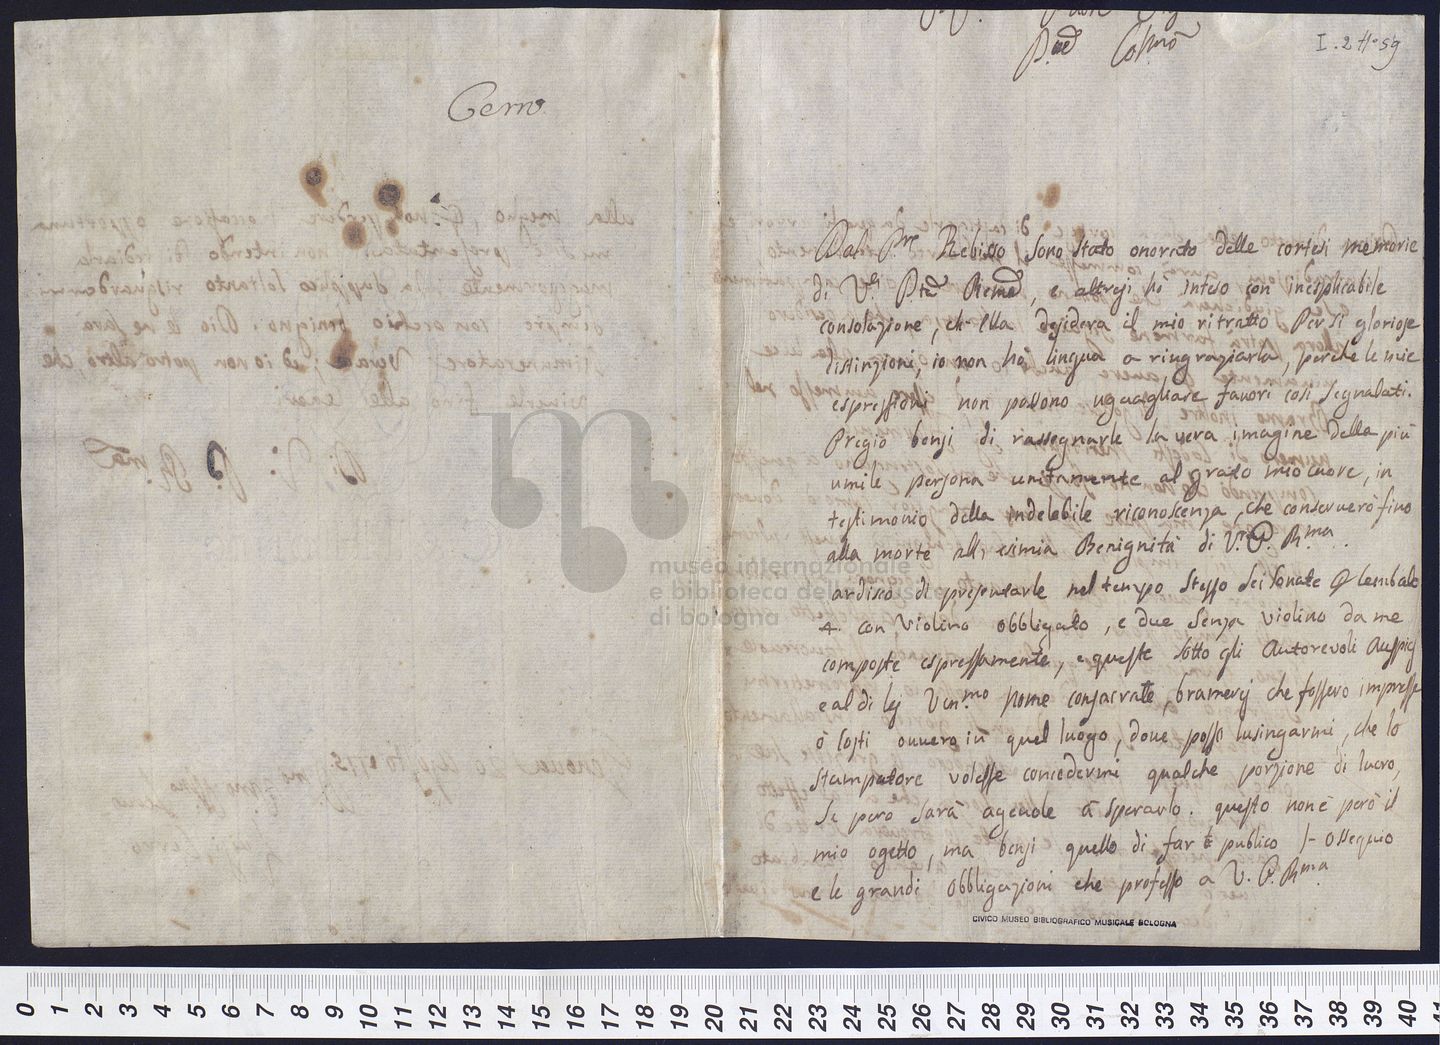 Cerro
Pad.
P.ne Col.mo
I. 2 H. 59
Dal P.re Rebisso sono stato onorato delle cortesi memorie
di V.a P.tà Rema, e altresi hò inteso con inesplicabile
consolazione, ch'Ella desidera il mio ritratto per si gloriose
distinzioni, io non hò lingua a ringraziarla, perche le mie
espressioni non possono uguagliare favori così segnalati.
Pregio bensi di rassegnarle la vera imagine della più
umile persona unitamente al grato mio cuore, in
testimonio della indelebile riconoscenza, che conserverò fino
alla morte all'esimia Benignità di V. P. R.ma
ardisco di presentarle nel tempo stesso sei sonate Cembalo
4. con Violino obbligato, e due senza violino da me
composte espressamente, e queste sotto gli Autorevoli Auspicj
e al di lej Ven.mo Nome consacrate, bramerej che fossero impresse
ò costi ovvero in quel luogo, dove posso lusingarmi, che lo
stampatore volesse concedermi qualche porzione di lucro,
se pero sarà agevole à sperarlo. questo non è però il
mio ogetto, ma bensi quello di far publico l'ossequio
e le grandi obbligazioni che professo a V. P. R.ma
CIVICO MUSEO BIBLIOGRAFICO MUSICALE BOLOGNA
museo internazionale
e biblioteca della musica
di bologna
0 1 2 3 4 5 6 7 8 9 10 11 12 13 14 15 16 17 18 19 20 21 22 23 24 25 26 27 28 29 30 31 32 33 34 35 36 37 38 39 40 41